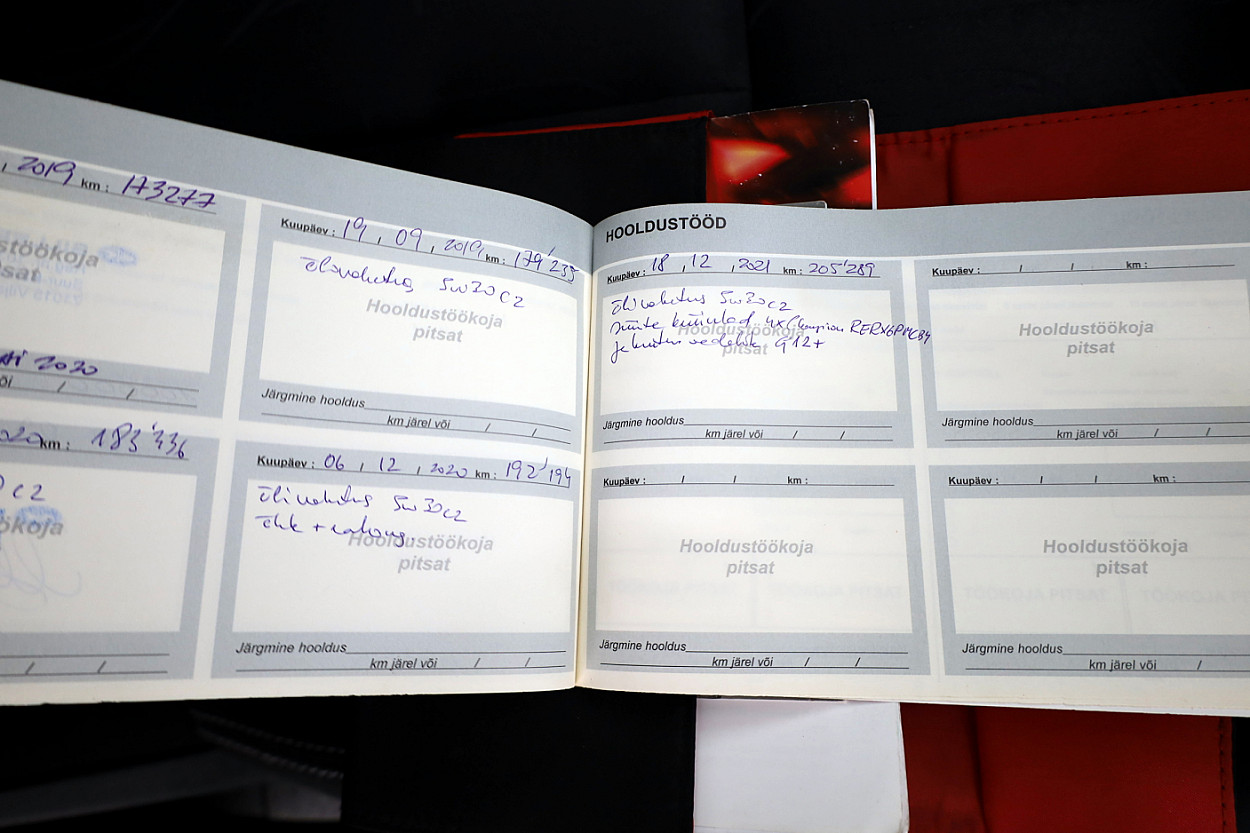 , 2019 km : 173277
stöökoja
itsat
2020
õi / /
km : 183'336
C2
öökoja
/ /
Kuupäev : 19 , 09 , 2019 km : 179'235
Õlivahetus 5w30 C2
Hooldustöökoja
pitsat
Järgmine hooldus
km järel või / /
Kuupäev : 06 , 12 , 2020 km : 192'194
Õlivahetus 5w30 C2
Hooldustöökoja
pitsat
Järgmine hooldus
km järel või / /
HOOLDUSTÖÖD
Kuupäev : 18 , 12 , 2021 km : 205'289
Õlivahetus 5w30 C2
süüte küünlad 4x Champion
jahutus vedelik G12+
Hooldustöökoja
pitsat
Järgmine hooldus
km järel või / /
Kuupäev : / / km :
Hooldustöökoja
pitsat
Järgmine hooldus
km järel või / /
Kuupäev : / / km :
Hooldustöökoja
pitsat
Järgmine hooldus
km järel või / /
Kuupäev : / / km :
Hooldustöökoja
pitsat
Järgmine hooldus
km järel või / /